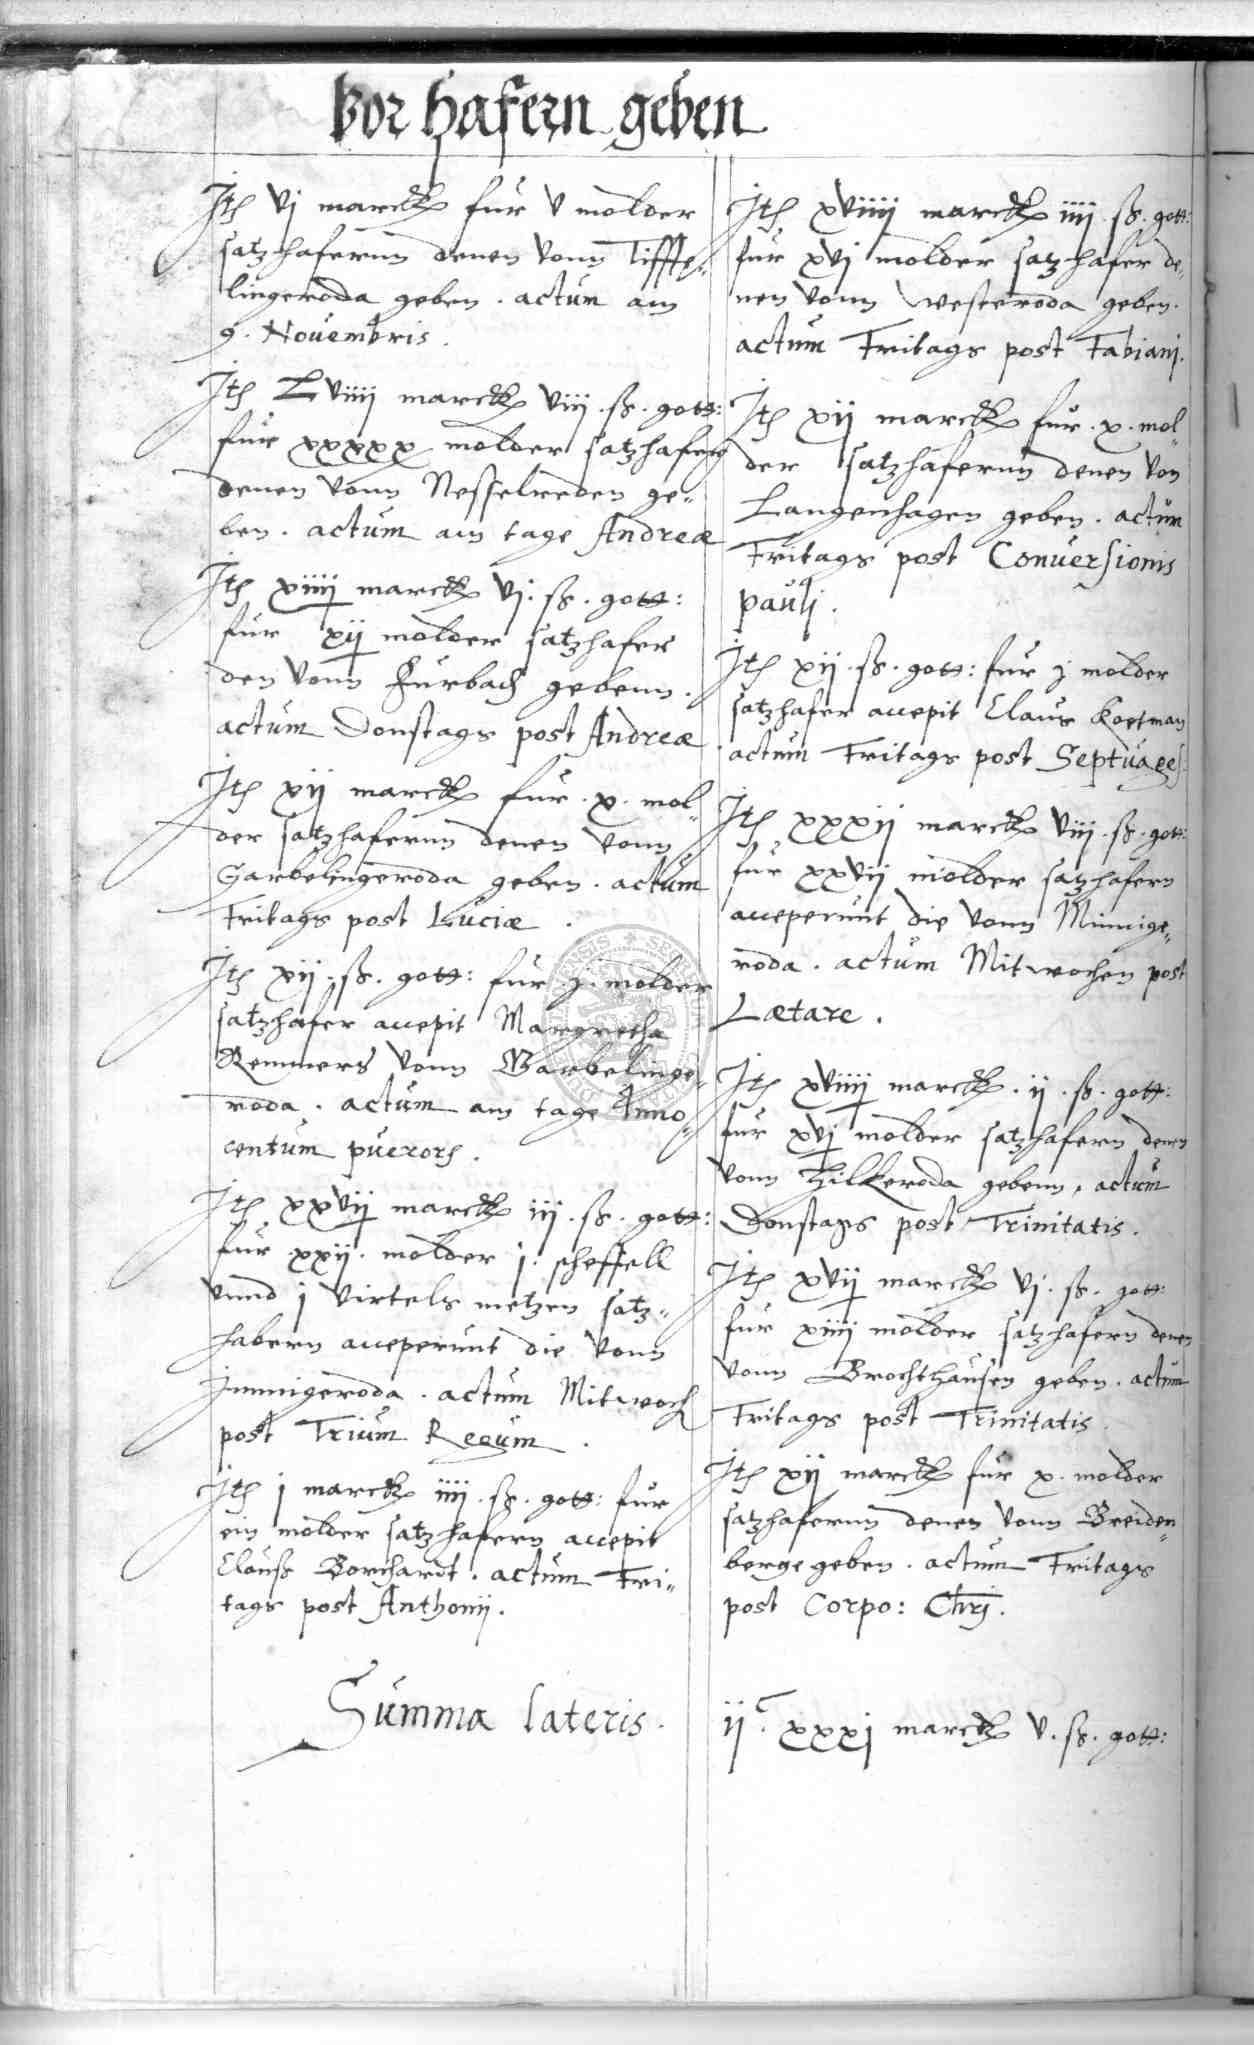 Vor hafern geben
Jtem vj marck fur v molder
satzhafernn denen vonn Tiffte„
lingeroda geben . actum am
9. Nouembris .
Jtem Lviiij marck viij . ß . gott:
fur xxxxx molder satzhafern
denen vonn Nesselreden ge„
ben . actum am tage Andreæ
Jtem xiiij marck vj . ß . gott:
fur xij molder satzhafer
den vonn Furbach gebenn .
actum Donstags post Andreæ
Jtem xij marck fur . x . mol„
der satzhafernn denen vonn
Garbelingeroda geben . actum
Fritags post Luciæ .
Jtem xij . ß . gott: fur . j . molder
satzhafer accepit Margretha
Remmers vonn Garbelinge„
roda . actum am tage Jnno„
centum puerorum .
Jtem xxvij marck iij . ß . gott:
fur xxij . molder j . scheffell
vnnd j virtels metzen satz„
habern acceperunt die vonn
Jmmigeroda . actum Mitwoch
post Trium Regum .
Jtem j marck iiij . ß . gott: fur
ein molder satzhafern accepit
Clauß Bornhardt . actum Fri„
tags post Anthonij .
Jtem xviiij marck iiij . ß . gott:
fur xvj molder satzhafer de„
nen vonn Westeroda geben .
actum Fritags post Fabianj .
Jtem xij marck fur . x . mol„
der satzhafernn denen von
Langenhagen geben . actum
Fritags post Conuersionis
paulj .
Jtem xij . ß . gott: fur j molder
satzhafer accepit Claus Kortman
actum Fritags post Septuages:
Jtem xxxij marck viij . ß . gott:
fur xxvij molder satzhafern
acceperunt die vonn Minnige„
roda . actum Mitwochen post
Lætare .
Jtem xviiij marck . ij . ß . gott:
fur xvj molder satzhafern denen
vonn Hilkeroda gebenn . actum
Donstags post Trinitatis .
Jtem xvij marck vj . ß . gott:
fur xiiij molder satzhafern denen
vonn Brochthausen geben . actum
Fritags post Trinitatis .
Jtem xij marck fur x . molder
satzhafernn denen vonn Breiden„
berge geben . actum Fritags
post Corpo: Chrj .
Summa lateris .
ijC . xxxj marck v . ß . gott: